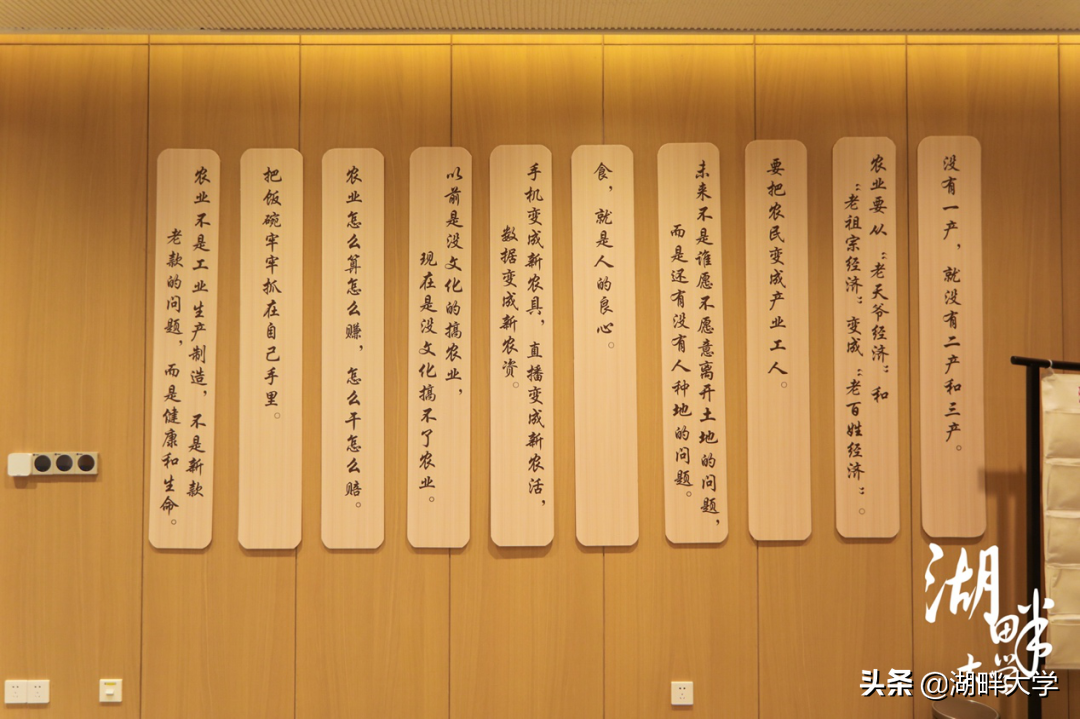 没有一产，就没有二产和三产。
农业要从“老天爷经济”和
“老祖宗经济”变成“老百姓经济”。
要把农民变成产业工人。
未来不是谁愿不愿意离开土地的问题，
而是还有没有人种地的问题。
食，就是人的良心。
手机变成新农具，直播变成新农活，
数据变成新农资。
以前是没文化的搞农业，
现在是没文化搞不了农业。
农业怎么算怎么赚，怎么干怎么赔。
把饭碗牢牢抓在自己手里。
农业不是工业生产制造，不是新款
老款的问题，而是健康和生命。
湖畔大学
头条 @湖畔大学